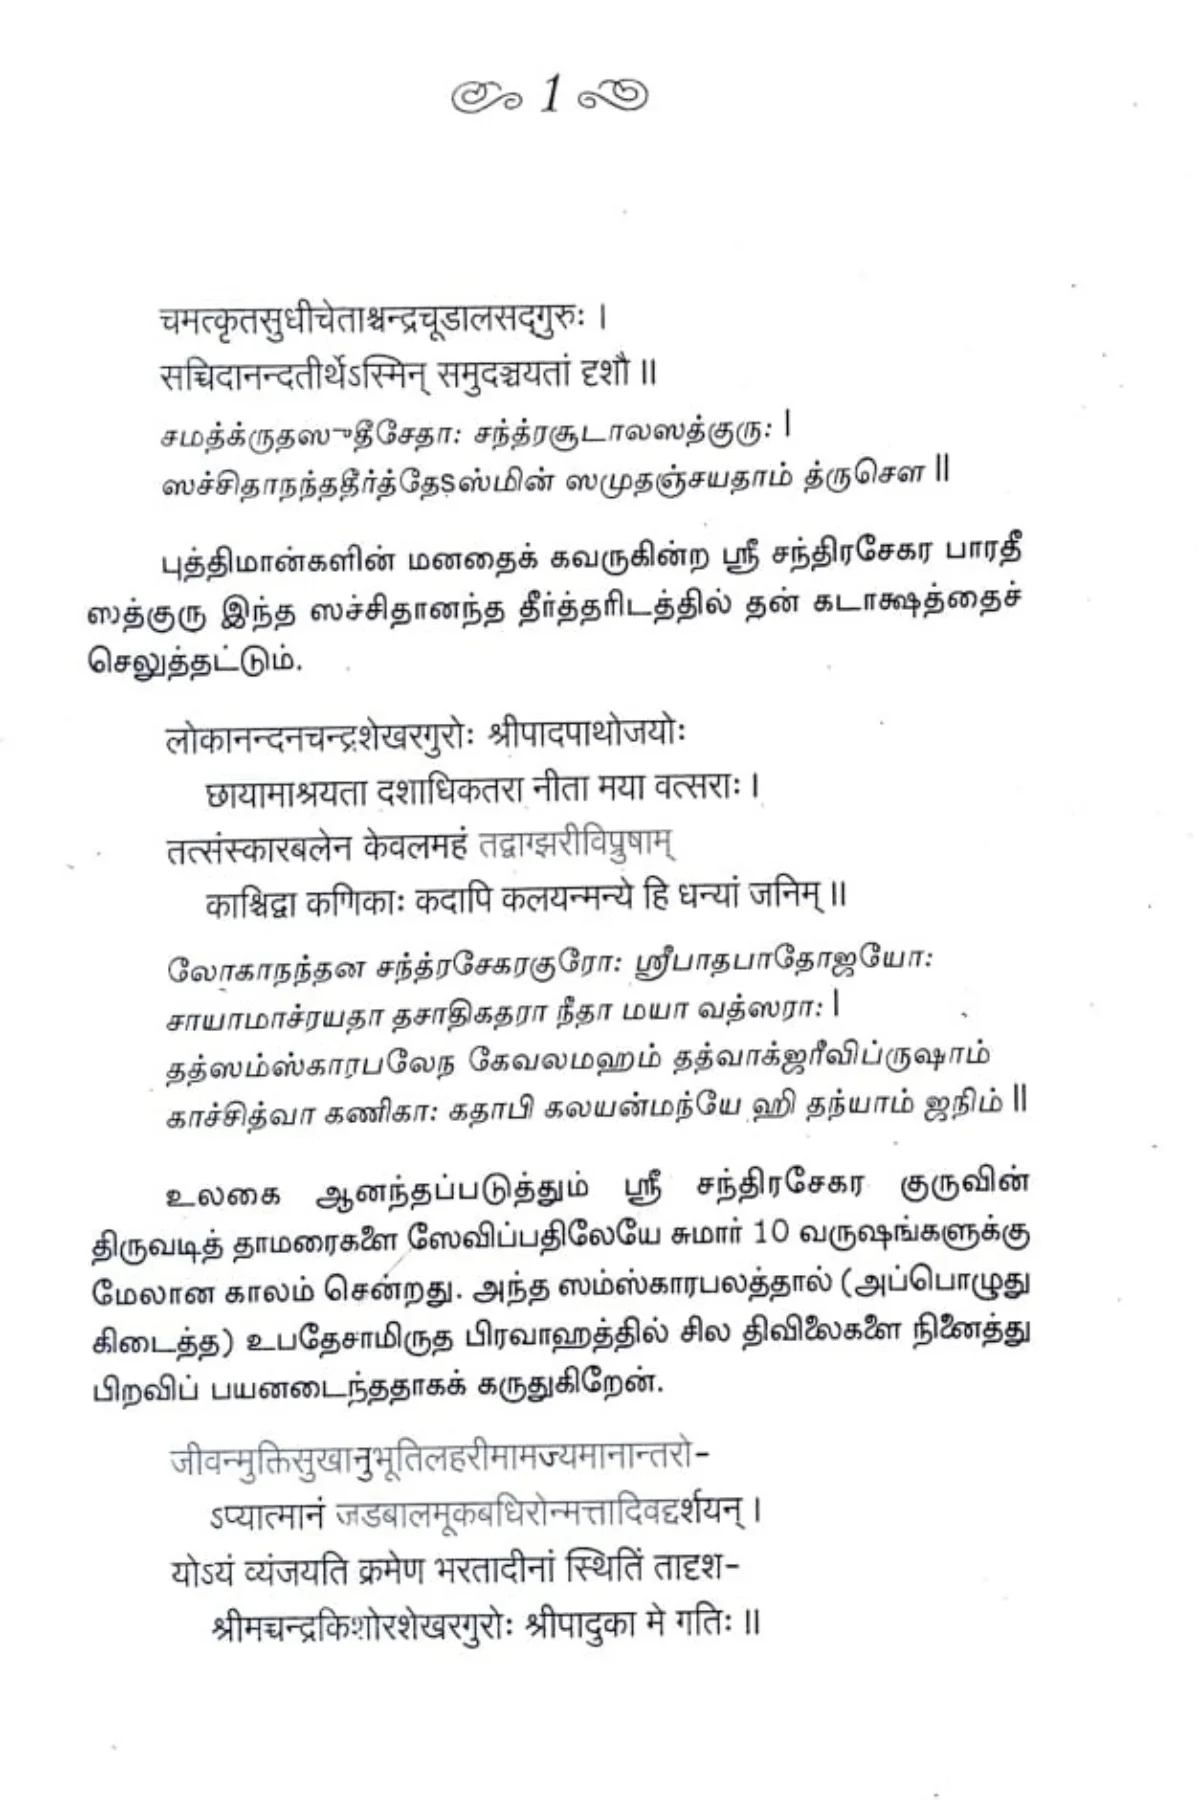 1
चमत्कृतसुधीचेताश्चन्द्रचूडालसद्गुरुः ।
सच्चिदानन्दतीर्थेऽस्मिन् समुदञ्चयतां दृशौ ॥
சமத்க்ருதஸுதீசேதா: சந்த்ரசூடாலஸத்குரு: |
ஸச்சிதாநந்ததீர்த்தேऽஸ்மின் ஸமுதஞ்சயதாம் த்ருசௌ ||
புத்திமான்களின் மனதைக் கவருகின்ற ஸ்ரீ சந்திரசேகர பாரதீ
ஸத்குரு இந்த ஸச்சிதானந்த தீர்த்தரிடத்தில் தன் கடாக்ஷத்தைச்
செலுத்தட்டும்.
लोकानन्दनचन्द्रशेखरगुरोः श्रीपादपाथोजयोः
छायामाश्रयता दशाधिकतरा नीता मया वत्सराः ।
तत्संस्कारबलेन केवलमहं तद्वाग्झरीविप्रुषाम्
काश्चिद्वा कणिकाः कदापि कलयन्मन्ये हि धन्यां जनिम् ॥
லோகாநந்தன சந்த்ரசேகரகுரோ: ஸ்ரீபாதபாதோஜயோ:
சாயாமாச்ரயதா தசாதிகதரா நீதா மயா வத்ஸரா: |
தத்ஸம்ஸ்காரபலேந கேவலமஹம் தத்வாக்ஜரீவிப்ருஷாம்
காச்சித்வா கணிகா: கதாபி கலயன்மந்யே ஹி தந்யாம் ஜநிம் ||
உலகை ஆனந்தப்படுத்தும் ஸ்ரீ சந்திரசேகர குருவின்
திருவடித் தாமரைகளை ஸேவிப்பதிலேயே சுமார் 10 வருஷங்களுக்கு
மேலான காலம் சென்றது. அந்த ஸம்ஸ்காரபலத்தால் (அப்பொழுது
கிடைத்த) உபதேசாமிருத பிரவாஹத்தில் சில திவிலைகளை நினைத்து
பிறவிப் பயனடைந்ததாகக் கருதுகிறேன்.
जीवन्मुक्तिसुखानुभूतिलहरीमामज्यमानान्तरो-
ऽप्यात्मानं जडबालमूकबधिरोन्मत्तादिवद्दर्शयन् ।
योऽयं व्यंजयति क्रमेण भरतादीनां स्थितिं तादृश-
श्रीमच्चन्द्रकिशोरशेखरगुरोः श्रीपादुका मे गतिः ॥